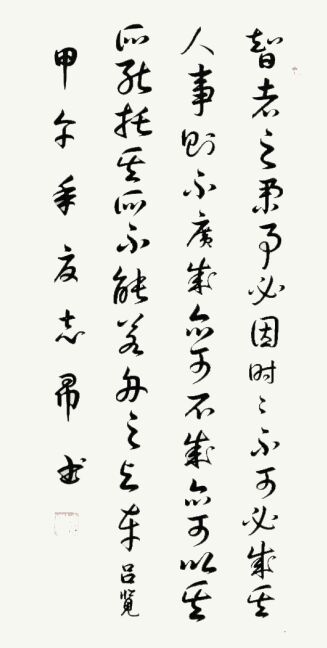 智者之舉事必因时〻不可必成其
人事則不廣成亦可不成亦可以其
所能托其所不能若舟之与车 吕覽
甲午年夏志書